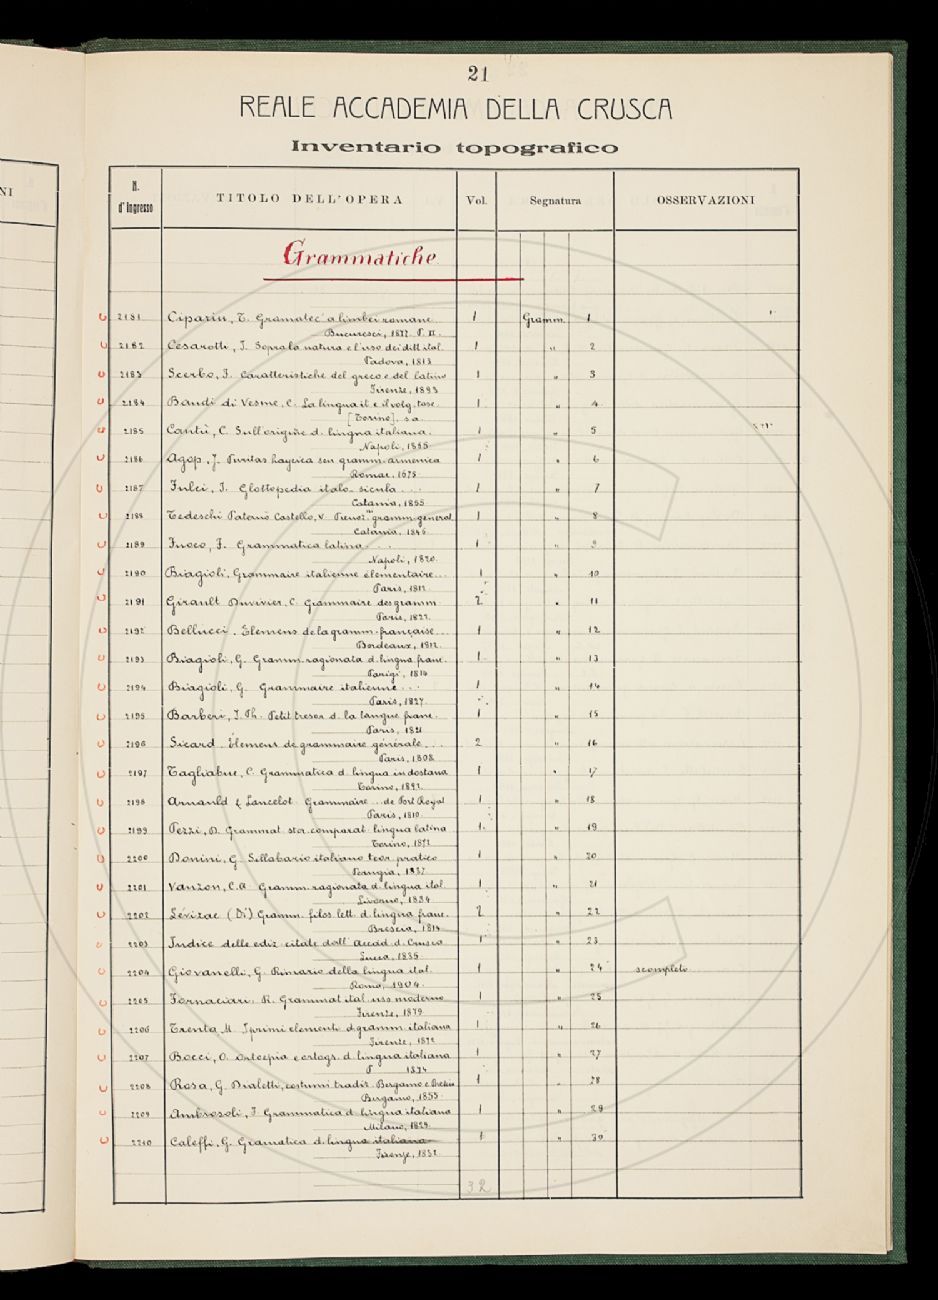 21
REALE ACCADEMIA DELLA CRUSCA
Inventario topografico
NI
N. d'Ingresso TITOLO DELL'OPERA Vol. Segnatura OSSERVAZIONI
Grammatiche
2181 Cipariu, T. Gramatec'a limbei romane. 1 Gramm. 1
Bucuresci, 1877. P. II.
2182 Cesarotti, J. Sopra la natura e l'uso dei ditt. ital. 1 " 2
Padova, 1813
2183 Scerbo, F. Caratteristiche del greco e del latino 1 " 3
Firenze, 1893
2184 Baudi di Vesme, C. La lingua it. e il volg. tosc. 1 " 4
[Torino]. s.a.
2185 Cantù, C. Sull'origine d. lingua italiana. 1 " 5
Napoli, 1865
2186 Agop, J. Puritas haygica seu gramm. armenica 1 " 6
Romae, 1675
2187 Fulci, I. Glottopedia italo-sicula... 1 " 7
Catania, 1855
2188 Tedeschi Paternò Castello, V. gramm. general. 1 " 8
Catania, 1846
2189 Fuoco, F. Grammatica latina... 1 " 9
Napoli, 1820.
2190 Biagioli, Grammaire italienne elementaire... 1 " 10
Paris, 18
2191 Girault Duvivier, C. Grammaire des gramm. 2 " 11
Paris, 1822.
2192 Bellucci. Elemens de la gramm. française... 1 " 12
Bordeaux, 1812.
2193 Biagioli, G. Gramm. ragionata d. lingua franc. 1 " 13
Parigi, 1814
2194 Biagioli, G. Grammaire italienne... 1 " 14
Paris, 1827.
2195 Barberi, J. Ph. Petit tresor d. la langue franc. 1 " 15
Paris, 1821
2196 Sicard. Élemens de grammaire générale... 2 " 16
Paris, 1808.
2197 Tagliabue, C. Grammatica d. lingua indostana 1 " 17
Torino, 1892.
2198 Arnauld & Lancelot. Grammaire... de Port Royal 1 " 18
Paris, 1810.
2199 Pezzi, D. Grammat. stor. comparat. lingua latina 1 " 19
Torino, 1872
2200 Donini, G. Sillabario italiano teor. pratico 1 " 20
Perugia, 1837
2201 Vanzon, C. A. Gramm. ragionata d. lingua ital. 1 " 21
Livorno, 1834
2202 Lévizac (Di) Gramm. filos. lett. d. lingua franc. 2 " 22
Brescia, 1814
2203 Indice delle ediz. citate dall'Accad. d. Crusca 1 " 23
Lucca, 1836.
2204 Giovanelli, G. Rimario della lingua ital. 1 " 24 scompleto
Roma, 1904.
2205 Fornaciari, R. Grammat. ital. uso moderno 1 " 25
Firenze, 1879
2206 Trenta, M. I primi elementi d. gramm. italiana 1 " 26
Firenze, 1872
2207 Bocci, O. Ortoepia e ortogr. d. lingua italiana 1 " 27
P 1874
2208 Rosa, G. Dialetti, costumi tradiz. Bergamo e Brescia 1 " 28
Bergamo, 1855.
2209 Ambrosoli, F. Grammatica d. lingua italiana 1 " 29
Milano, 1829.
2210 Caleffi, G. Gramatica d. lingua italiana 1 " 30
Firenze, 1832.
32